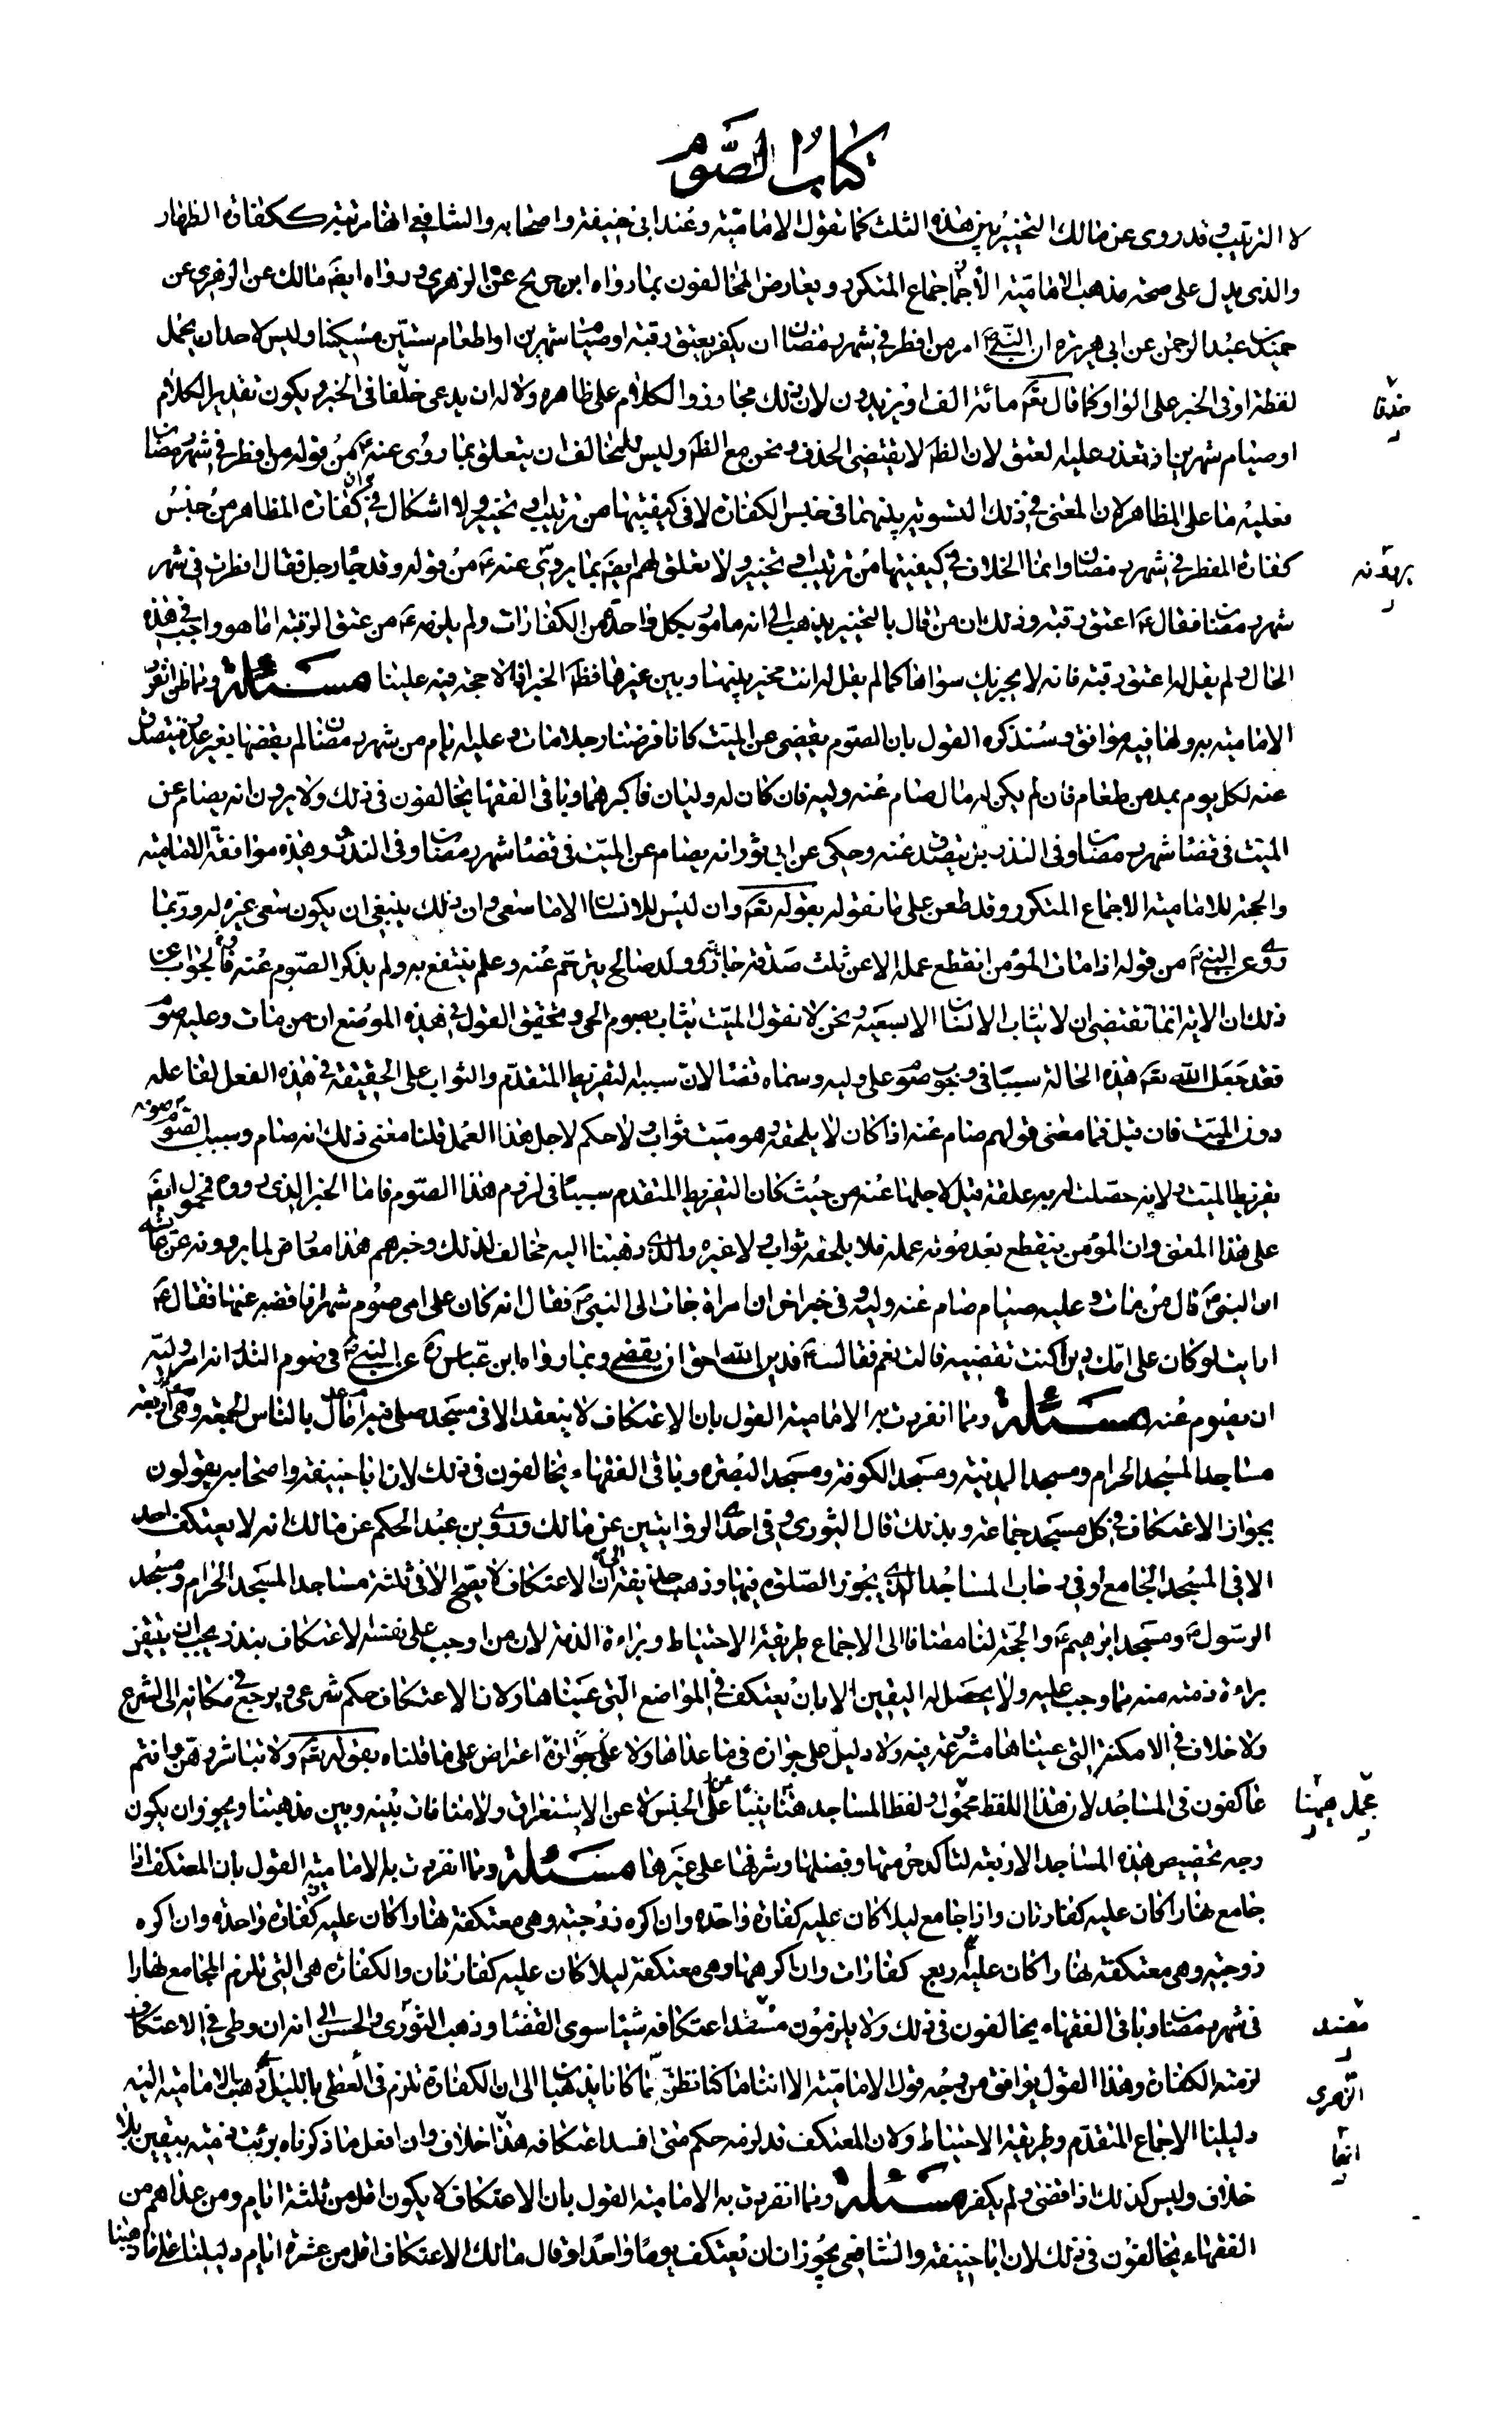 كتاب الصوم
لا الترتيب وقد روى عن مالك التخيير بين هذه الثلث كما تقول الامامية وعند ابى حنيفة واصحابه والشافعى انها مرتبة ككفارة الظهار
والذى يدل على صحة مذهب الامامية الأجماع المتكرر ويعارض المخالفون بما رواه ابن جريح عن الزهرى ورواه ايضَ مالك عن الزهرى عن
حميد بن عبد الرحمن عن ابى هريرة ان النبىّ ص امر من افطر فى شهر رمضان ان يكفر بعتق رقبة او صيام شهرين او اطعام ستّين مسكينا وليس لاحد ان يحمل
لفظة او فى الخبر على الواو كما قال تعَ مائة الف او يزيدون لان ذلك مجاز والكلام على ظاهره ولا له ان يدعى حذفا فى الخبر ويكون تقدير الكلام
او صيام شهرين ان تعذر عليه العتق لان الظَ لا يقتضى الحذف ونحن مع الظَ وليس للمخالف ان يتعلق بما روى عنه ع من قوله من افطر فى شهر رمضان
فعليه ما على المظاهر لان المعنى فى ذلك التسوية بينهما فى جنس الكفارة لا فى كيفيتها من ترتيب او تخيير ولا اشكال فى ان كفارة المظاهر من جنس
كفارة المفطر فى شهر رمضان وانما الخلاف فى كيفيتها من ترتيب او تخيير ولا تعلق لهم ايضَ بما يروى عنه ع من قوله وقد جاء رجل فقال افطرت فى شهر
شهر رمضان فقال ع اعتق رقبة وذلك ان من قال بالتخيير يذهب الى انه مامور بكل واحدة من الكفارات ولم يلزمه ع من عتق الرقبة اما هو واجب فى هذه
الحال ولم يقل له اعتق رقبة فانه لا يجزيك سواها كما لم يقل له انت مخير بينها وبين غيرها فظَ الخبر اذا لا حجة فيه علينا مسئلة ومما ظن انفراد
الامامية به ولها فيه موافق وسنذكره القول بان الصوم يقضى عن الميت كانا فرضنا رجلا مات وعليه ايام من شهر رمضان لم يقضها بغير عذر فيتصدق
عنه لكل يوم بمد من طعام فان لم يكن له مال صام عنه وليه فان كان له وليان فاكبرهما وباقى الفقهاء يخالفون فى ذلك ولا يرون انه يصام عن
الميت فى قضاء شهر رمضان وفى النذر بل يتصدق عنه وحكى عن ابى ثور انه يصام عن الميت فى قضاء شهر رمضان وفى النذر وهذه موافقة الامامية
والحجة للامامية الاجماع المتكرر وقد طعن على ما نقوله بقوله تعَ وان ليس للانسان الا ما سعى وان ذلك ينبغى ان يكون سعى غيره له وربما
روى عن النبى ص من قوله اذا مات المؤمن انقطع عمله الا عن ثلث صدقة جارية وولد صالح يترحم عنه وعلم ينتفع به ولم يذكر الصوم عنه فالجواب عن
ذلك ان الاية انما تقتضى ان لا يثاب الانسان الا بسعيه ونحن لا نقول الميت يثاب بصوم الحى وتحقيق القول فى هذه الموضع ان من مات وعليه صوم
فقد جعل الله تعَ هذه الحالة سببا فى وجوب صوم على وليه وسماه قضاء لان سببه التفريط المتقدم والثواب على الحقيقة فى هذه الفعل لفاعله
دون الميت فان قيل فما معنى قولهم صام عنه اذا كان لا يلحقه وهو ميت ثواب ولا حكم لاجل هذا العمل قلنا معنى ذلك انه صام وسبب الصوم
تفريط الميت ولانه حصلت له به علقة قيل لاجلها عنه من حيث كان التفريط المتقدم سببا فى لزوم هذا الصوم فاما الخبر الذى رووه فمحمول ايضَ
على هذا المعنى وان المؤمن ينقطع بعد موته عمله فلا يلحقه ثواب ولا غيره والذى ذهبنا اليه مخالف لذلك وخبرهم هذا معارض لما يروونه عن عايشة
ان النبى ص قال من مات وعليه صيام صام عنه وليه وفى خبر اخر ان امراة جاءت الى النبى ص فقال انه كان على امى صوم شهر افاقضيه عنها فقال ع
ارايت لو كان على امك دين اكنت تقضينه قالت نعم فقال ع فدين الله احق ان يقضى وبما رواه ابن عباس ره عن النبى ص فى صوم النذر انه امر وليه
ان يصوم عنه مسئلة ومما انفردت به الامامية القول بان الاعتكاف لا ينعقد الا فى مسجد صلى فيه امام عدل بالناس الجمعة وهى اربعة
مساجد المسجد الحرام ومسجد المدينة ومسجد الكوفة ومسجد البصرة وباقى الفقهاء يخالفون فى ذلك لان ابا حنيفة واصحابه يقولون
بجواز الاعتكاف فى كل مسجد جماعة وبذلك قال الثورى وفى احدى الروايتين عن مالك وروى بن عبد الحكم عن مالك انه لا يعتكف احد
الا فى المسجد الجامع او فى رحاب المساجد الذى يجوز الصلوة فيها وذهب حذيفة الى ان الاعتكاف لا يصح الا فى ثلثة مساجد المسجد الحرام ومسجد
الرسول ص ومسجد ابرهيم ع والحجة لنا مضافا الى الاجماع طريقة الاحتياط وبراءة الذمة لان من اوجب على نفسه الاعتكاف بنذر يجب ان يتيقن
براءة ذمته منه مما وجب عليه ولا يحصل له اليقين الا بان يعتكف فى المواضع التى عيناها ولان الاعتكاف حكم شرعى ويرجع فى مكانه الى الشرع
ولا خلاف فى الامكنة التى عيناها مشروعة فيه ولا دليل على جوازه فى ما عداها ولا على جوازه اعتراض على ما قلناه بقوله تعَ ولا تباشروهن وانتم
عاكفون فى المساجد لان هذا اللفظ محمول ولفظ المساجد هنا ينبئ عن الجنس لا عن الاستغراق ولا منافات بينه وبين مذهبنا ويجوز ان يكون
وجه تخصيص هذه المساجد الاربعة لتاكد حرمتها وفضلها وشرفها على غيرها مسئلة ومما انفردت به الامامية القول بان المعتكف اذا
جامع نهارا كان عليه كفارتان واذا جامع ليلا كان عليه كفارة واحدة وان اكره زوجته وهى معتكفة نهارا كان عليه كفارة واحدة وان اكره
زوجته وهى معتكفة نهارا كان عليه اربع كفارات وان اكرهها وهى معتكفة ليلا كان عليه كفارتان والكفارة هى التى تلزم المجامع نهارا
فى شهر رمضان وباقى الفقهاء يخالفون فى ذلك ولا يلزمون مفسد اعتكافه شيئا سوى القضاء وذهب الثورى والحسن الى انه ان وطى فى الاعتكاف
لزمته الكفارة وهذا القول يوافق من وجه قول الامامية الا اننا ما كنا نظن انهما كانا يذهبا الى ان الكفارة تلزم فى الوطى بالليل وذهب الامامية اليه
دليلنا الاجماع المتقدم وطريقة الاحتياط ولان المعتكف قد لزمه حكم متى افسد اعتكافه هذا خلاف وان افعل ما ذكرناه برئت ذمته بيقين بلا
خلاف وليس كذلك اذا قضى ولم يكفر مسئلة ومما انفردت به الامامية القول بان الاعتكاف لا يكون اقل من ثلثة ايام ومن عداهم من
الفقهاء يخالفون فى ذلك لان ابا حنيفة والشافعى يجوزان ان يعتكف يوما واحدا وقال مالك لا اعتكاف اقل من عشرة ايام دليلنا على ما ذهبنا
حذفا
يروونه
مجمل ههنا
مفسد
الزهرى
انهما